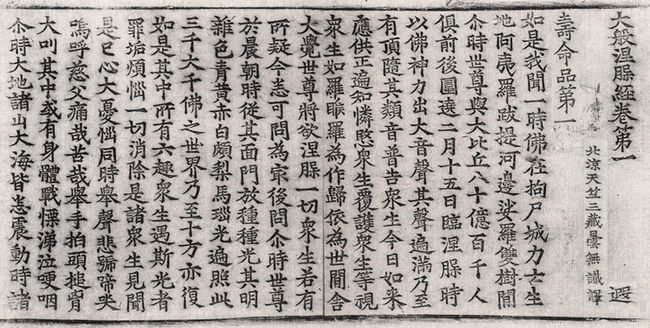 大般涅槃經卷第一 遐
北涼天竺三藏曇無讖譯
壽命品第一
如是我聞一時佛在拘尸城力士生
地阿夷羅跋提河邊娑羅雙樹間
尒時世尊與大比丘八十億百千人
俱前後圍遶二月十五日臨涅槃時
以佛神力出大音聲其聲遍滿乃至
有頂隨其類音普告衆生今日如来
應供正遍知憐愍衆生覆護衆生等視
衆生如羅睺羅為作歸依為世間舍
大覺世尊將欲涅槃一切衆生若有
所疑今悉可問為冣後問尒時世尊
於晨朝時從其面門放種種光其明
雜色青黃赤白頗梨馬瑙光遍照此
三千大千佛之世界乃至十方亦復
如是其中所有六趣衆生遇斯光者
罪垢煩惱一切消除是諸衆生見聞
是已心大憂惱同時舉聲悲號啼哭
嗚呼慈父痛哉苦哉舉手拍頭搥胷
大叫其中或有身體戰慄涕泣哽咽
尒時大地諸山大海皆悉震動時諸